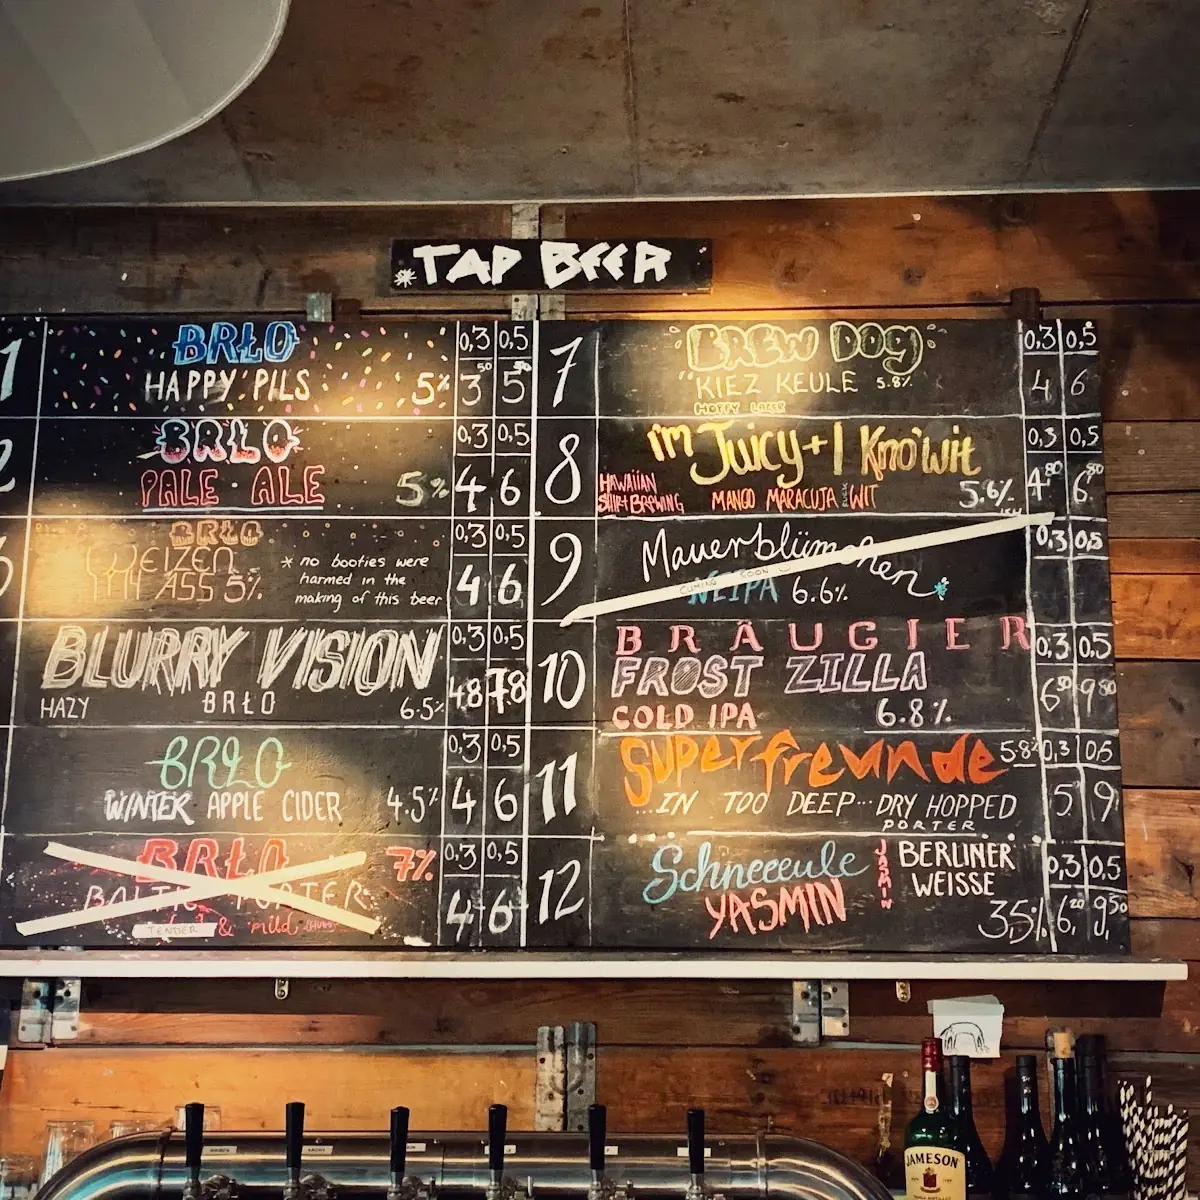 *TAP BEER
1
BRŁO
HAPPY PILS 5%
0,3 0,5
3⁵⁰ 5⁵⁰
2
BRŁO
PALE ALE 5%
0,3 0,5
4 6
3
BRŁO
WEIZEN
ASS 5%
* no booties were
harmed in the
making of this beer
0,3 0,5
4 6
BLURRY VISION
HAZY BRŁO 6.5%
0,3 0,5
4,8 7,8
BRŁO
WINTER APPLE CIDER 4.5%
0,3 0,5
4 6
BRŁO 7%
BALTIC PORTER
TENDER & mild
0,3 0,5
4 6
7
BREW DOG
"KIEZ KEULE 5.8%
HOPPY LAGER
0,3 0,5
4 6
8
I'm Juicy + I Kno'wit
HAWAIIAN
SHIRT BREWING
MANGO MARACUJA WIT 5.6%
0,3 0,5
4⁸⁰ 6⁸⁰
9
Mauerblümchen
COMING SOON
NEIPA 6.6%
0,3 0,5
10
BRÄUGIER
FROST ZILLA
COLD IPA 6.8%
0,3 0,5
6⁵⁰ 9⁸⁰
11
Superfreunde 5.8%
...IN TOO DEEP... DRY HOPPED
PORTER
0,3 0,5
5 9
12
Schneeeule
YASMIN
JASMIN
BERLINER
WEISSE
3,5%
0,3 0,5
6²⁰ 9⁵⁰
JAMESON